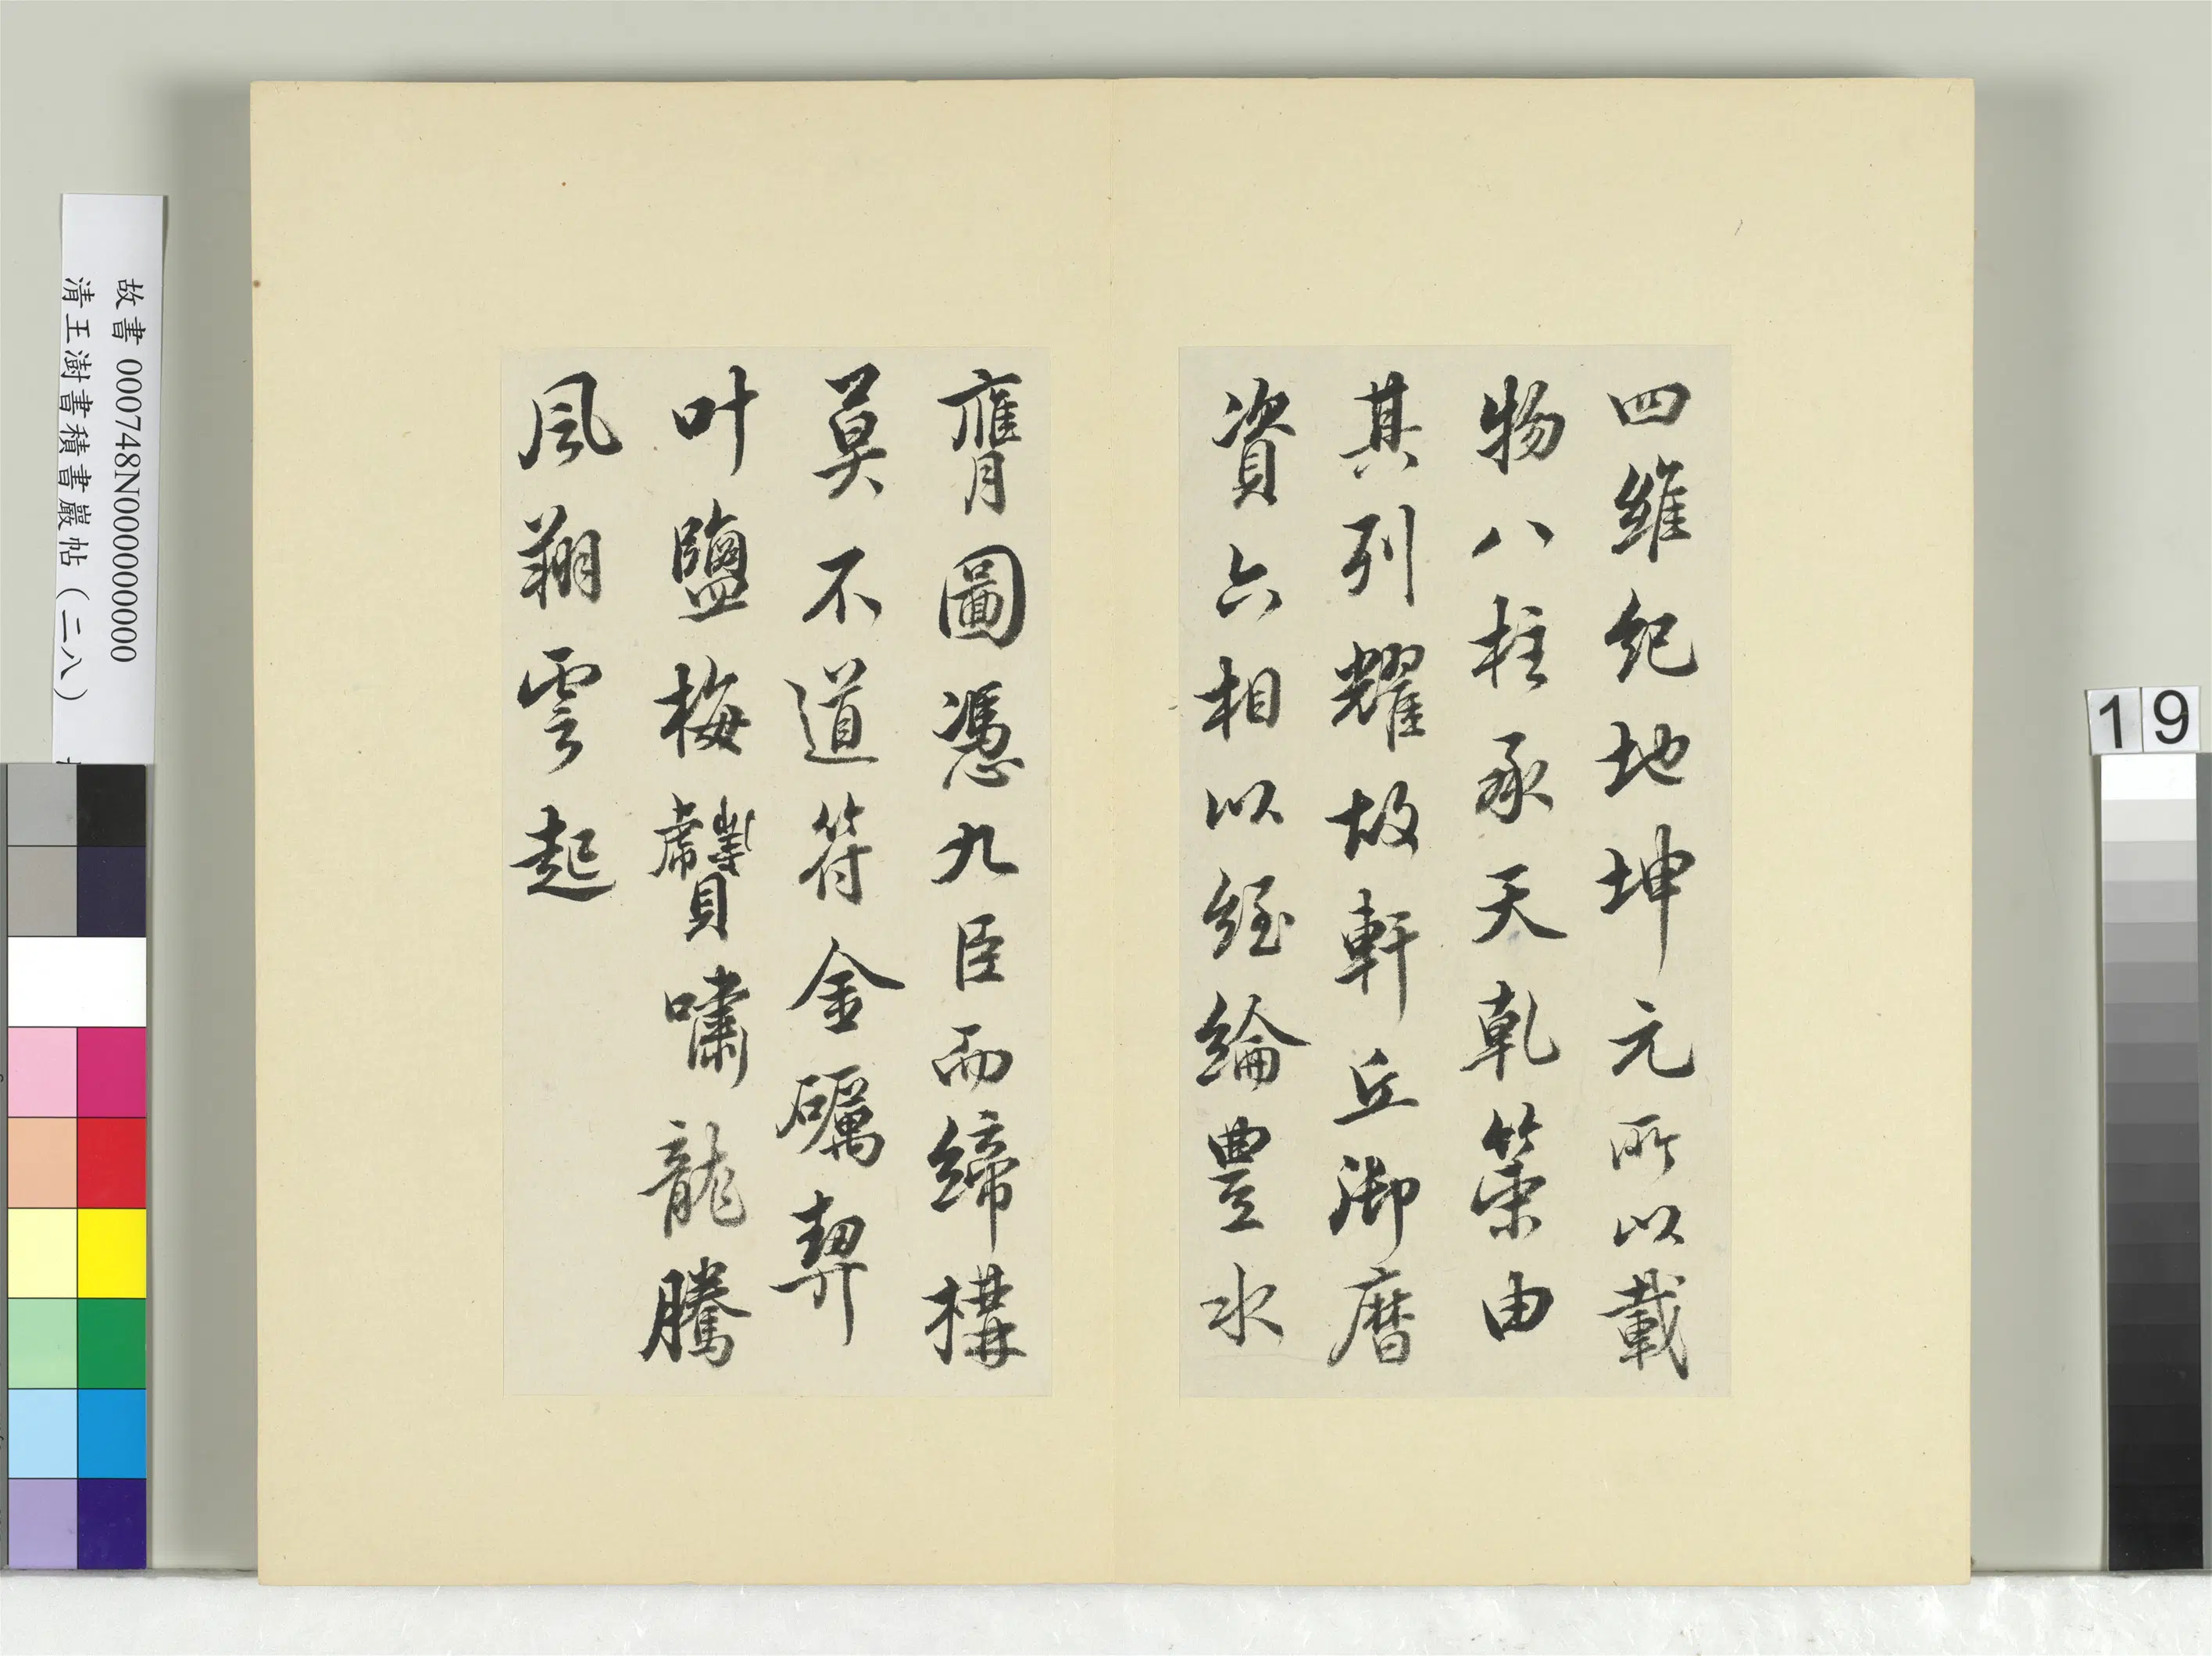 四維紀地坤元所以載
物八柱承天乹象由
其列耀故軒丘御曆
資六相以經綸豊水
膺圖憑九臣而締構
莫不道符金礪契
叶鹽梅嘯龍騰
風翔雲起
故書 000748N000000000
清王澍書積書巖帖（二八）
19